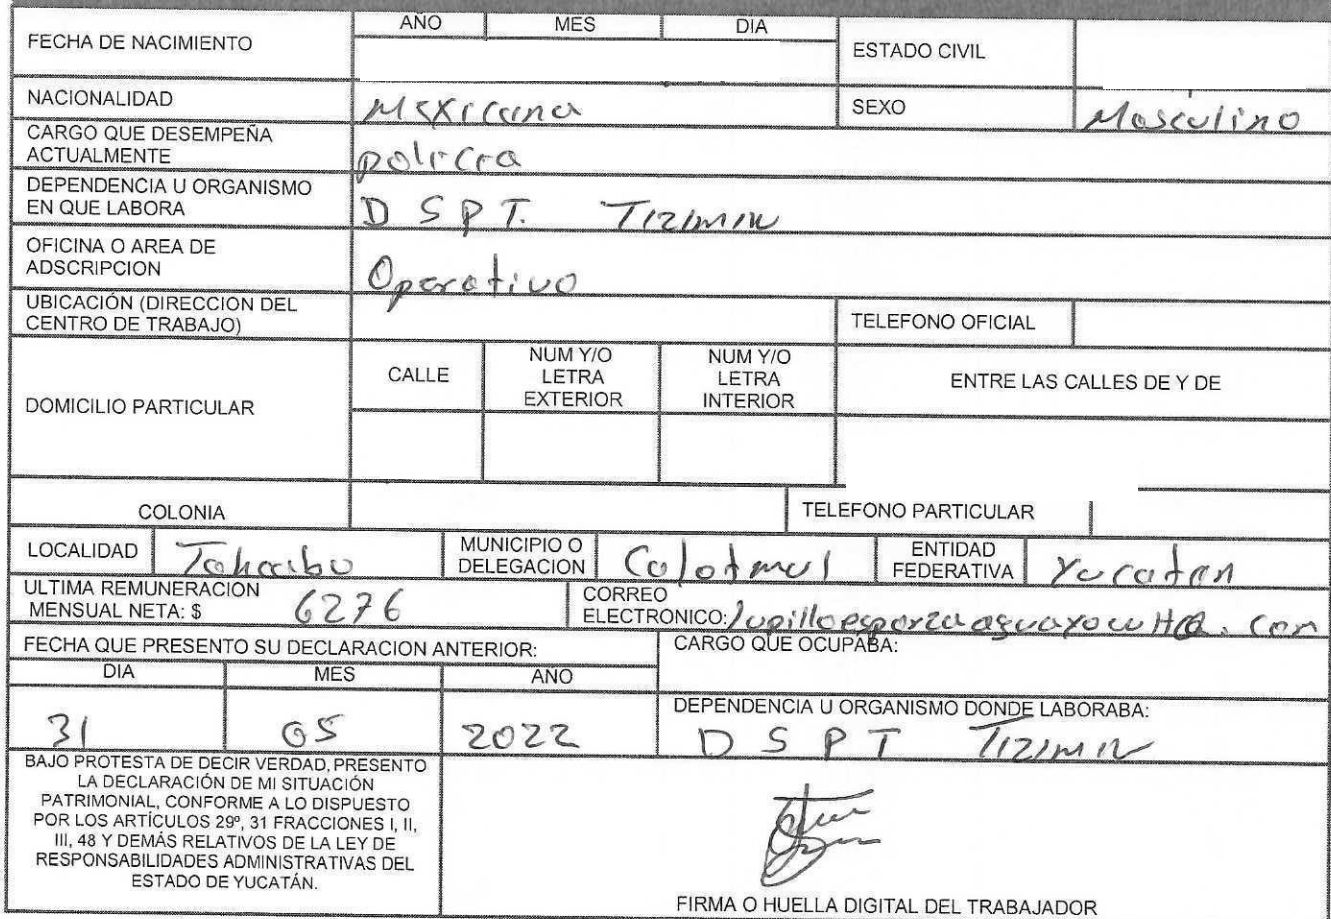 FECHA DE NACIMIENTO AÑO MES DIA ESTADO CIVIL
NACIONALIDAD Mexicana SEXO Masculino
CARGO QUE DESEMPEÑA
ACTUALMENTE policia
DEPENDENCIA U ORGANISMO
EN QUE LABORA D S P T. Tizimin
OFICINA O AREA DE
ADSCRIPCION Operativo
UBICACIÓN (DIRECCION DEL
CENTRO DE TRABAJO) TELEFONO OFICIAL
DOMICILIO PARTICULAR
CALLE
NUM Y/O
LETRA
EXTERIOR
NUM Y/O
LETRA
INTERIOR
ENTRE LAS CALLES DE Y DE
COLONIA TELEFONO PARTICULAR
LOCALIDAD Tahcabo
MUNICIPIO O
DELEGACION Calotmul
ENTIDAD
FEDERATIVA Yucatan
ULTIMA REMUNERACION
MENSUAL NETA: $ 6276
CORREO
ELECTRONICO:
FECHA QUE PRESENTO SU DECLARACION ANTERIOR: CARGO QUE OCUPABA:
DIA MES AÑO
31 05 2022
DEPENDENCIA U ORGANISMO DONDE LABORABA:
D S P T Tizimin
BAJO PROTESTA DE DECIR VERDAD, PRESENTO
LA DECLARACIÓN DE MI SITUACIÓN
PATRIMONIAL, CONFORME A LO DISPUESTO
POR LOS ARTÍCULOS 29º, 31 FRACCIONES I, II,
III, 48 Y DEMÁS RELATIVOS DE LA LEY DE
RESPONSABILIDADES ADMINISTRATIVAS DEL
ESTADO DE YUCATÁN.
FIRMA O HUELLA DIGITAL DEL TRABAJADOR